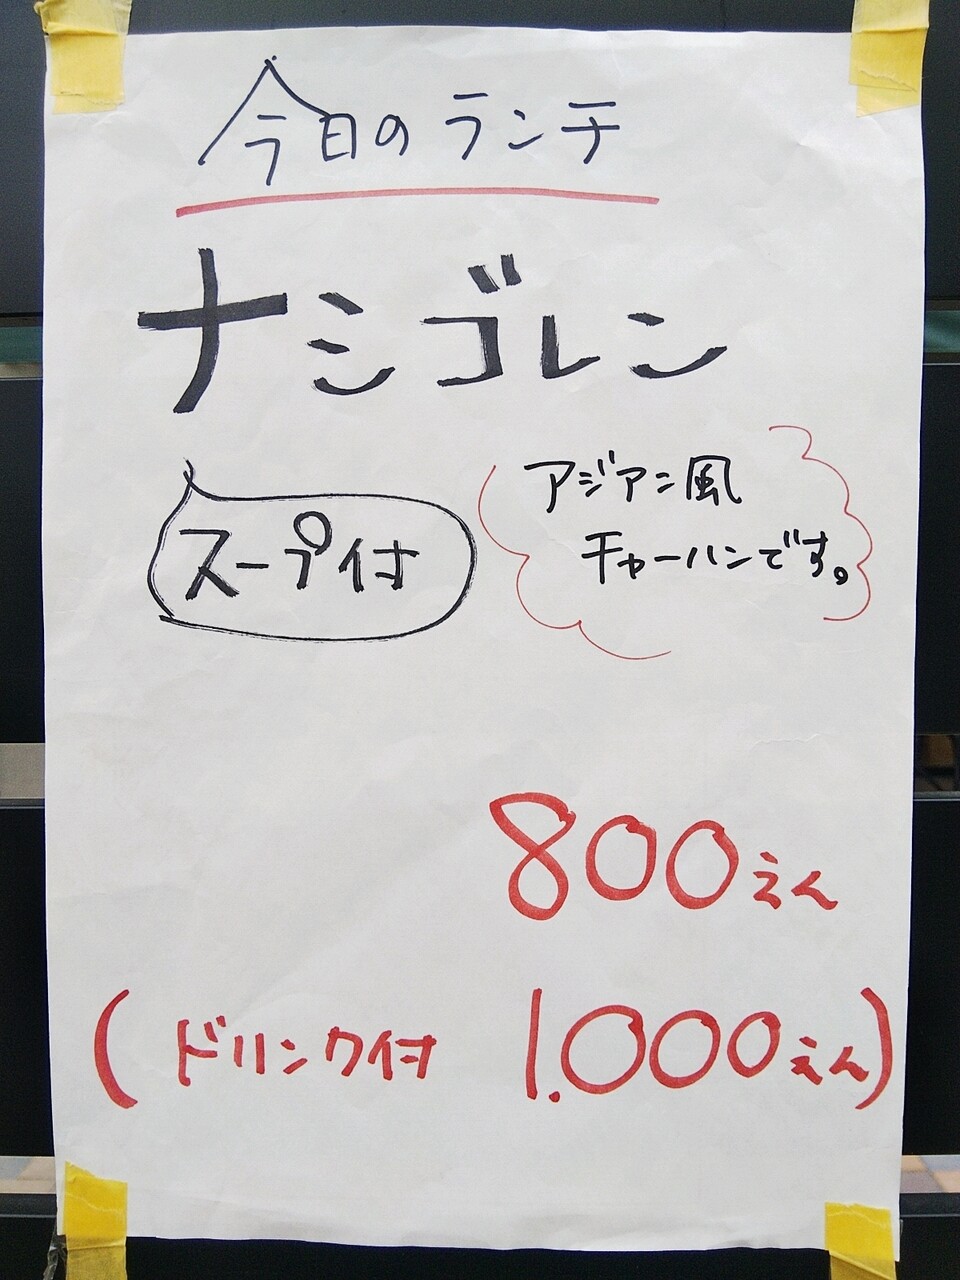 今日のランチ
ナシゴレン
スープ付
アジアン風
チャーハンです。
800えん
(ドリンク付 1.000えん)